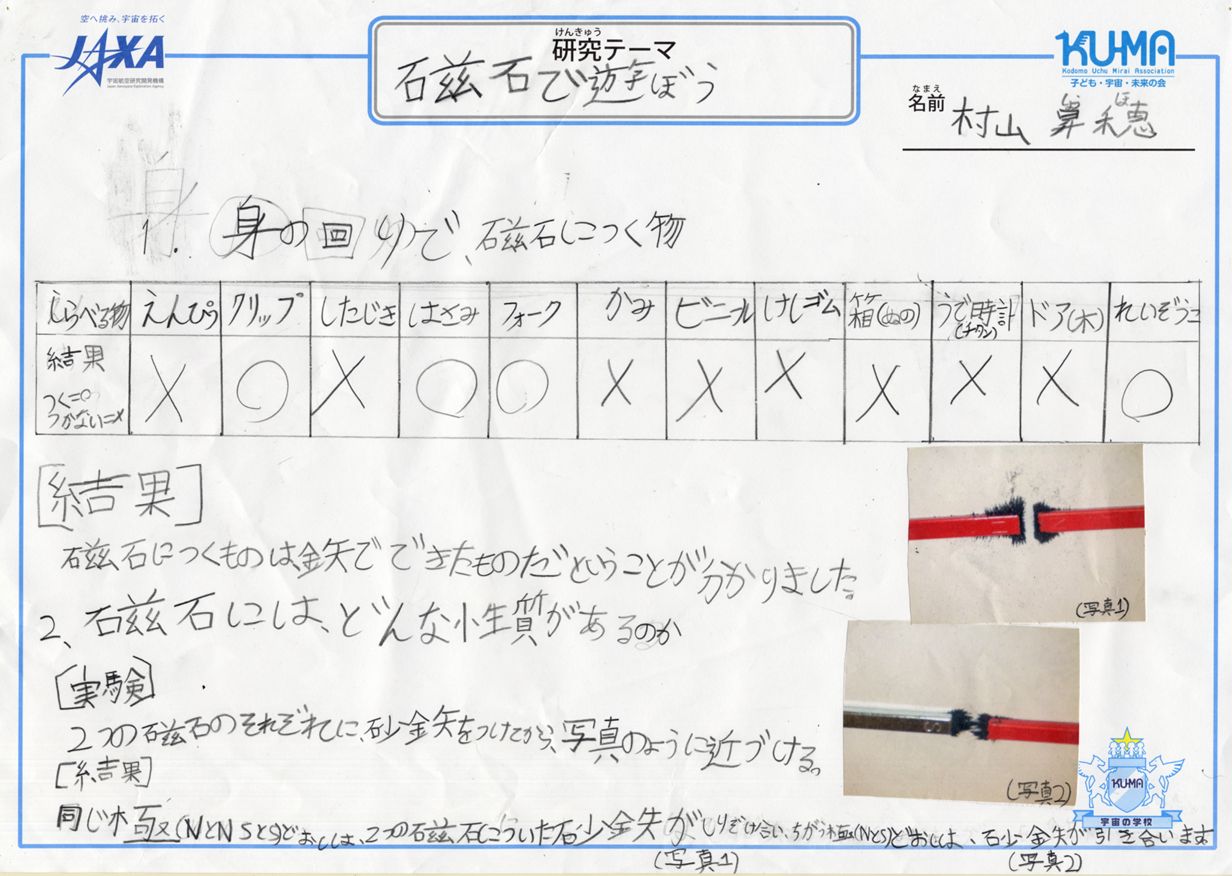 空へ挑み、宇宙を拓く
JAXA
宇宙航空研究開発機構
Japan Aerospace Exploration Agency
けんきゅう
研究テーマ
磁石で遊ぼう
KU-MA
Kodomo Uchu Mirai Association
子ども・宇宙・未来の会
なまえ
名前 村山 穂恵
1. 身の回りで、磁石につく物
しらべる物 えんぴつ クリップ したじき はさみ フォーク かみ ビニール けしゴム 箱(ぬの) うで時計(チタン) ドア(木) れいぞうこ
結果 つく=○ つかない=× × ○ × ○ ○ × × × × × × ○
[結果]
磁石につくものは、鉄でできたものだということが分かりました。
2、磁石には、どんな性質があるのか
(写真1)
[実験]
2つの磁石のそれぞれに、砂鉄をつけてから、写真のように近づける。
[結果]
(写真2)
同じ極(NとN SとS)どおしは、2つの磁石についた砂鉄がしりぞけ合い、ちがう極(NとS)どおしは、砂鉄が引き合います
(写真1) (写真2)
KUMA
宇宙の学校